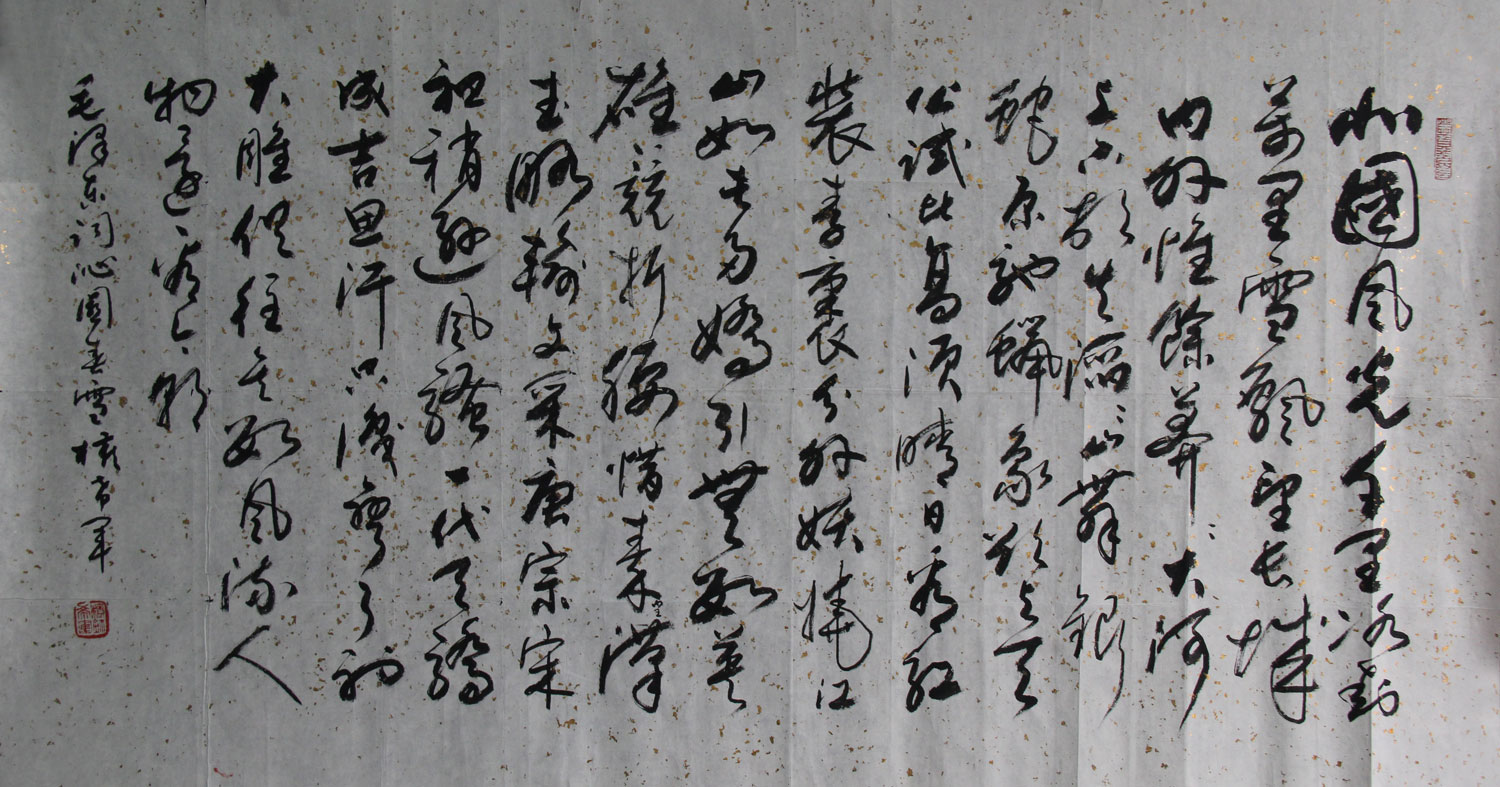 北國風光千里冰封
萬里雪飄望長城
内外惟餘莽莽大河
上下頓失滔滔山舞銀
蛇原馳蠟象欲與天
公試比高須晴日看紅
裝素裹分外妖嬈江
山如此多嬌引無數英
雄競折腰惜秦皇漢
武略輸文采唐宗宋
祖稍遜風騷一代天驕
成吉思汗只識彎弓射
大雕俱往矣數風流人
物還看今朝
毛澤東詞沁園春雪